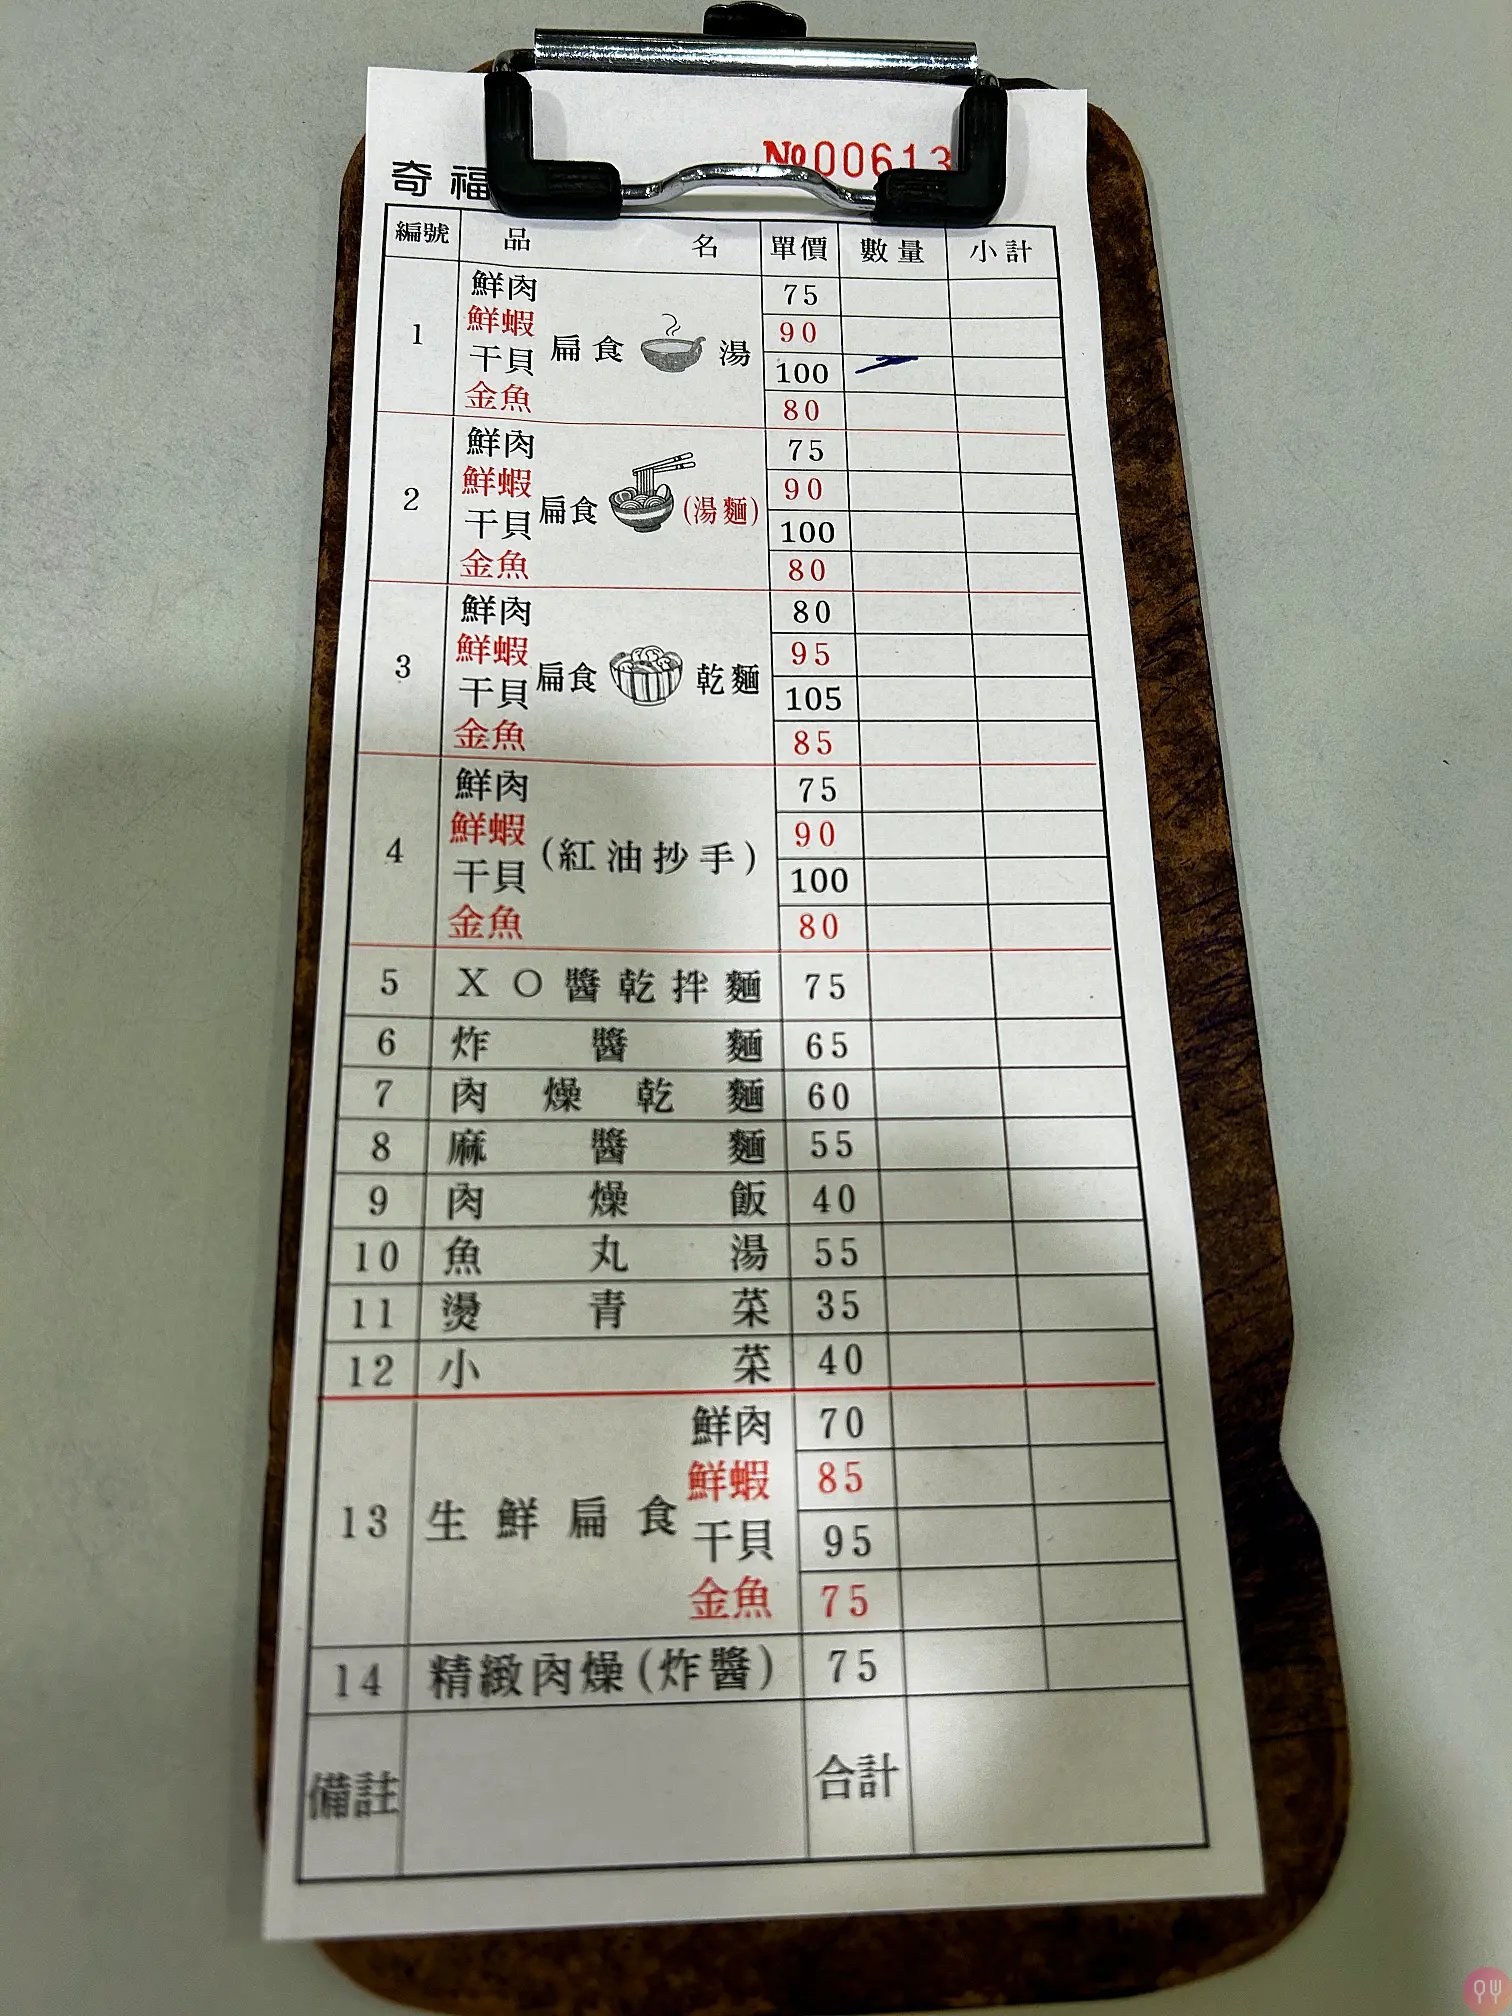 №00613
奇福
編號 品名 單價 數量 小計
1 扁食湯
鮮肉 75
鮮蝦 90
干貝 100
金魚 80
2 扁食(湯麵)
鮮肉 75
鮮蝦 90
干貝 100
金魚 80
3 扁食乾麵
鮮肉 80
鮮蝦 95
干貝 105
金魚 85
4 (紅油抄手)
鮮肉 75
鮮蝦 90
干貝 100
金魚 80
5 XO醬乾拌麵 75
6 炸醬麵 65
7 肉燥乾麵 60
8 麻醬麵 55
9 肉燥飯 40
10 魚丸湯 55
11 燙青菜 35
12 小菜 40
13 生鮮扁食
鮮肉 70
鮮蝦 85
干貝 95
金魚 75
14 精緻肉燥(炸醬) 75
備註 合計